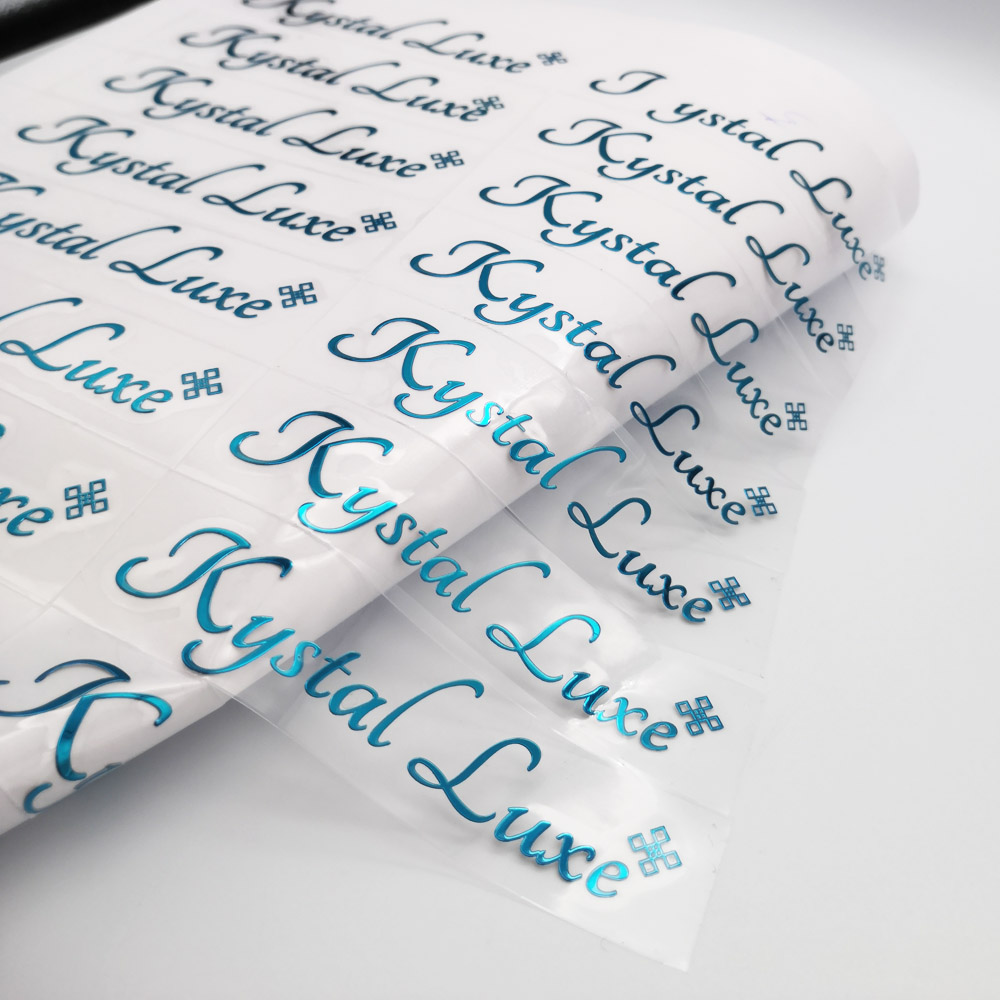 Kystal Luxe
Kystal Luxe
Kystal Luxe
Kystal Luxe
Kystal Luxe
Luxe
xe
J ystal Luxe
Kystal Luxe
Kystal Luxe
Kystal Luxe
Kystal Luxe
Kystal Luxe
Kystal Luxe
K